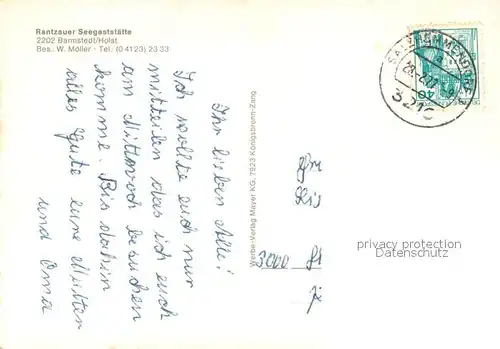 Rantzauer Seegaststätte
2202 Barmstedt/Holst.
Bes.: W. Möller · Tel. (0 41 23) 23 33
Ihr lieben Alle!
Ich wollte euch nur
mitteilen das ich euch
am Mittwoch besuchen
komme. Bis dahin
alles Gute eure Mutter
und Oma
Werbe-Verlag Mayer KG, 7923 Königsbronn-Zang
SALZHEMMENDORF
3216
40
3000
privacy protection
Datenschutz